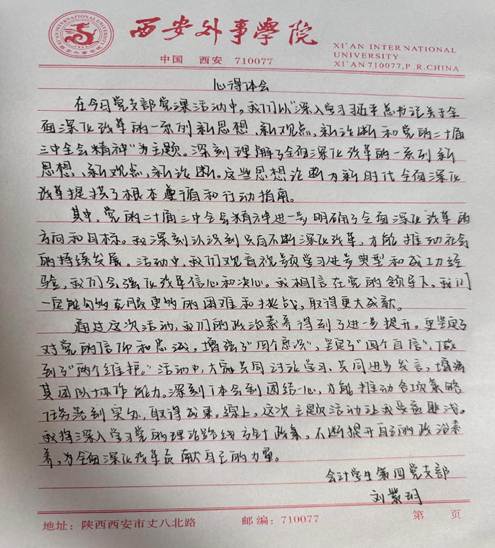 西安外事學院
中国 西安 710077
XI'AN INTERNATIONAL
UNIVERSITY
XI'AN 710077, P. R. CHINA
心得体会
在今日党支部党课活动中,我们以“深入学习习近平总书记关于全
面深化改革的一系列新思想、新观点、新论断和党的二十届
三中全会精神”为主题。深刻理解了全面深化改革的一系列新
思想、新观点、新论断。这些思想论断为新时代全面深化
改革提供了根本遵循和行动指南。
其中,党的二十届三中全会精神进一步明确了全面深化改革的
方向和目标。我深刻认识到只有不断深化改革,才能推动社会
的持续发展。活动中,我们观看视频学习先进典型和成功经
验,我们会强化改革信心和决心。我相信在党的领导下,我们
一定能够克服更多的困难和挑战,取得更大成就。
通过这次活动,我们的政治素养得到了进一步提升。更坚定了
对党的信仰和忠诚,增强了“四个意识”,坚定“四个自信”,做
到了“两个维护”。活动中,大家共同讨论学习、共同进步发言,增强
其团队协作能力。深刻了体会到团结一心,才能推动各项策略
任务落到实处,取得成果。综上,这次主题党活动让我受益匪浅。
我将深入学习党的理论路线方针政策,不断提升自己的政治素
养,为全面深化改革贡献自己的力量。
会计学生第四党支部
刘紫玥
地址:陕西西安市丈八北路 邮编:710077 第 页